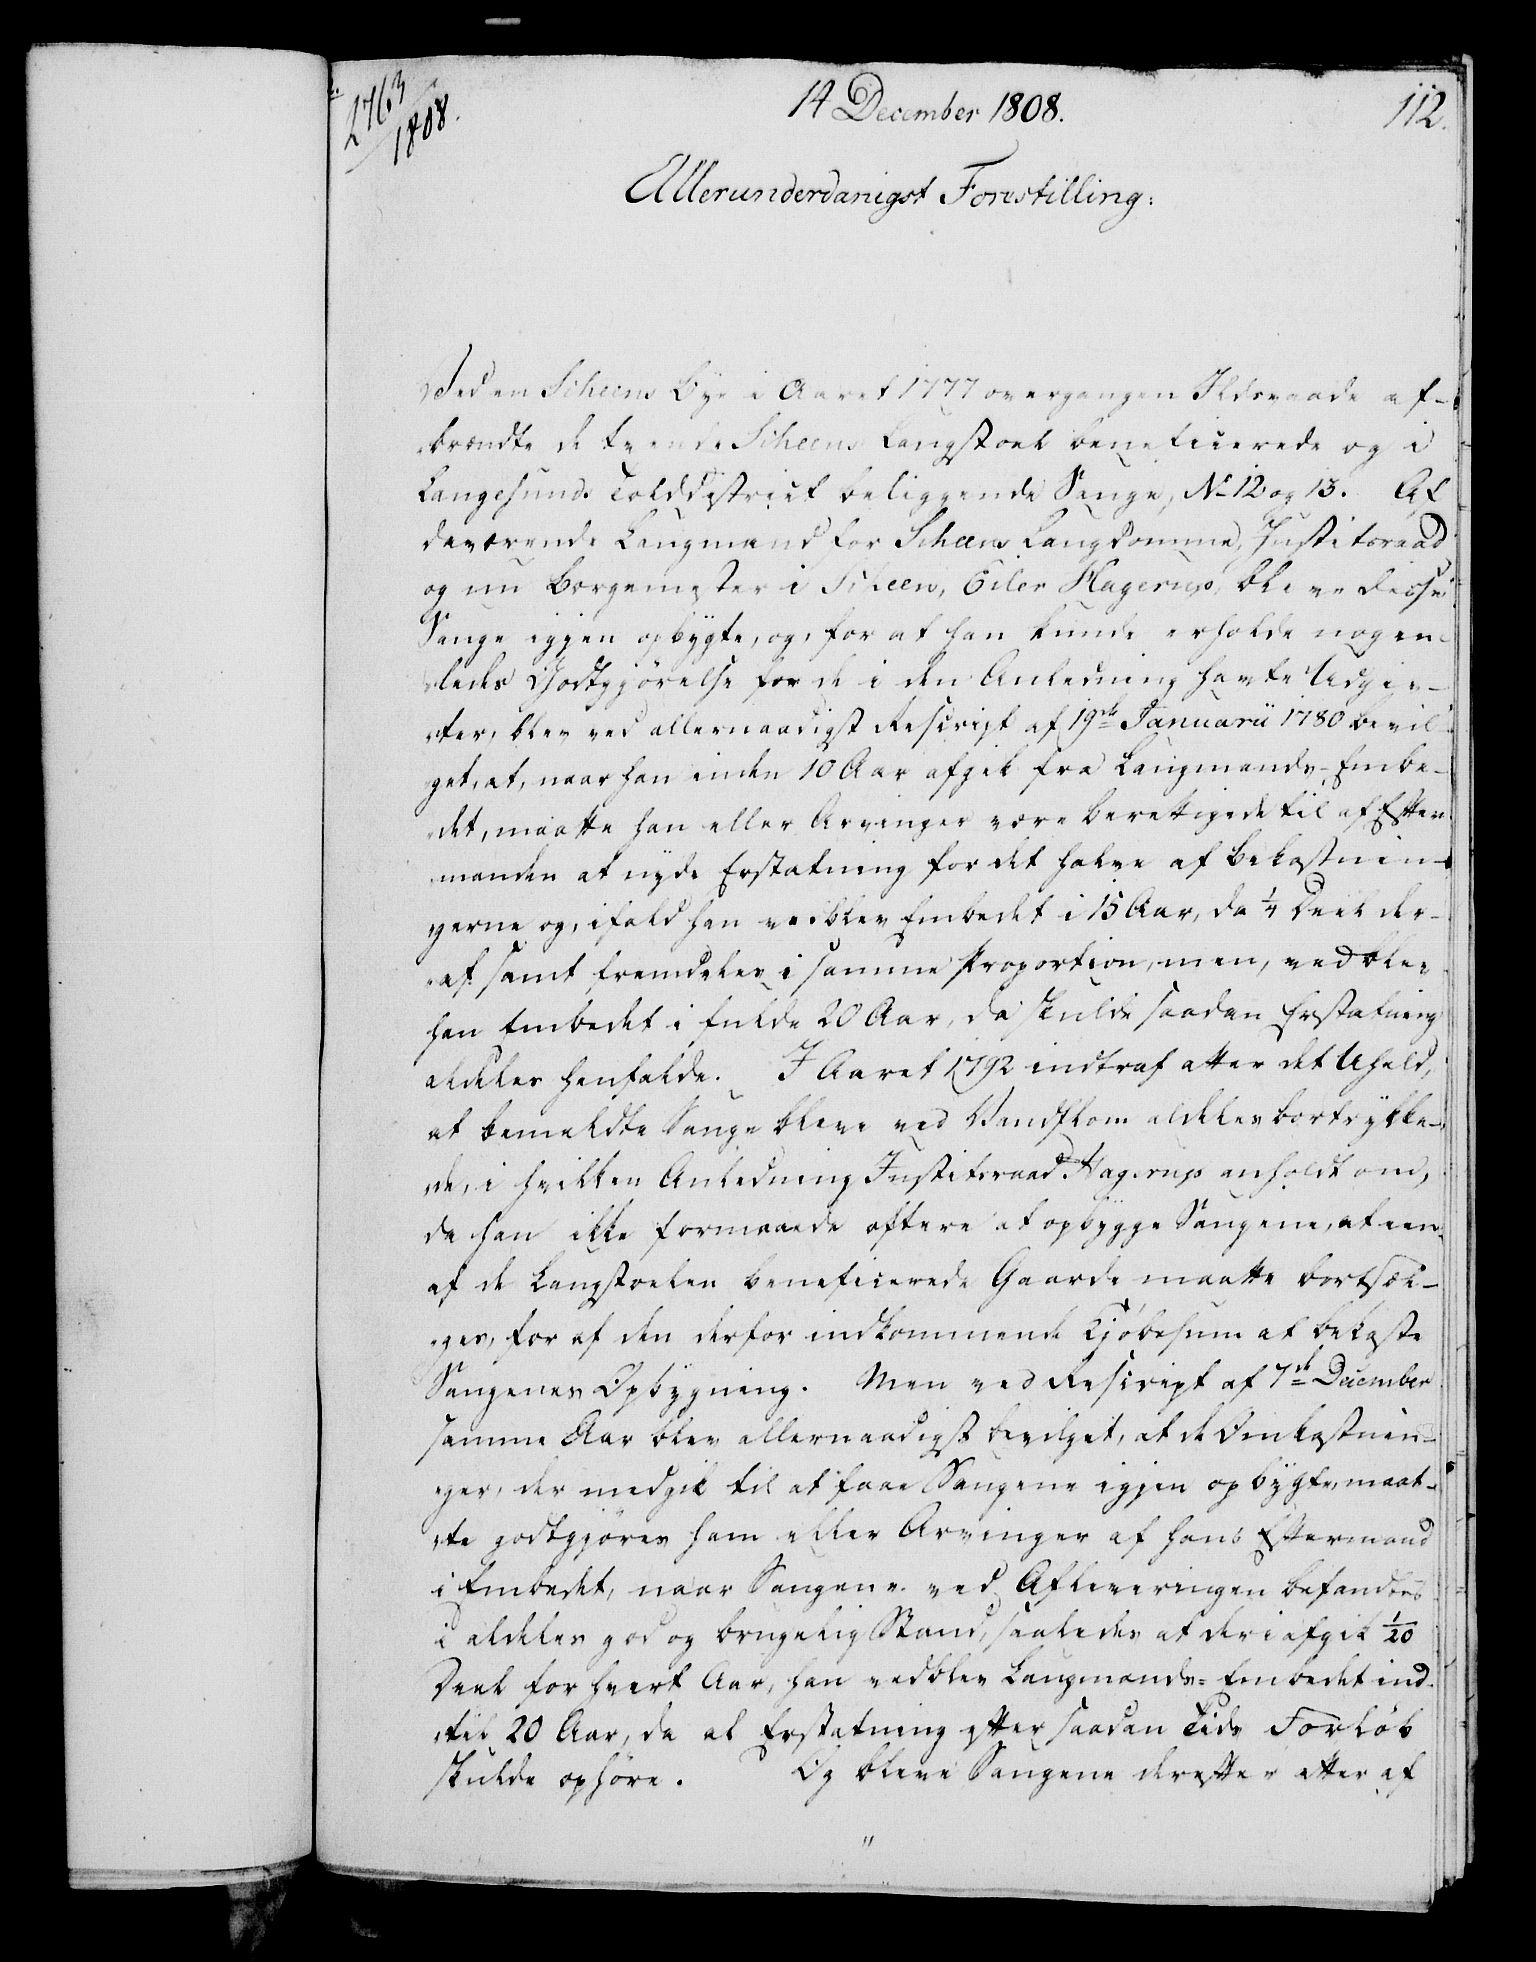 2763
1808.
14 December 1808.
112.
Allerunderdanigst Forestilling:
Ved en Scheens Bye i Aaret 1777 overgangen Ildsvaade af-
brændte de tvende Scheens Laugstoel beneficerede og i
Langesunds Tolddistrict beliggende Sauge, No 12 og 13. Af
daværende Laugmand for Scheens Laugdomme, Justitsraad
og nu Borgemester i Scheen, Eiler Hagerup, bleve disse
Sauge igjen opbygte, og, for at han kunde erholde nogen-
ledes Godtgjörelse for de i den Anledning havte Udgiv-
ter, blev ved allernaadigst Rescript af 19de Januarii 1780 bevil-
get, at, naar han inden 10 Aar afgik fra Laugmands-Embe-
det, maatte han eller Arvinger være berettigede til af Efter-
manden at nyde Erstatning for det halve af Bekostnin-
gerne og, ifald han vedblev Embedet i 15 Aar, da 1/4 Deel der-
af samt fremdeles i samme Proportion, men, vedblev
han Embedet i fulde 20 Aar, da skulde saadan Erstatning
aldeles henfalde. I Aaret 1792 indtraf atter det Uheld,
at bemeldte Sauge bleve ved Vandflom aldeles bortrykke-
de, i hvilken Anledning Justitsraad Hagerup anholdt om,
da han ikke formaaede oftere at opbygge Saugene, at een
af de Laugstoelen beneficerede Gaarde maatte bortsæl-
ges, for af den derfor indkommende Kjöbesum at bekoste
Saugenes Opbygning. Men ved Rescript af 7de December
samme Aar blev allernaadigst bevilget, at de Omkostnin-
ger, der medgik til at faae Saugene igjen opbygte, maat-
te godtgjöres ham eller Arvinger af hans Eftermand
i Embedet, naar Saugene ved Afleveringen befandtes
i aldeles god og brugelig Stand, saaledes at deri afgik 1/20
Deel for hvert Aar, han vedblev Laugmands-Embedet ind-
til 20 Aar, da al Erstatning efter saadan Tids Forløb
skulde ophöre. Og bleve Saugene derefter atter af
"